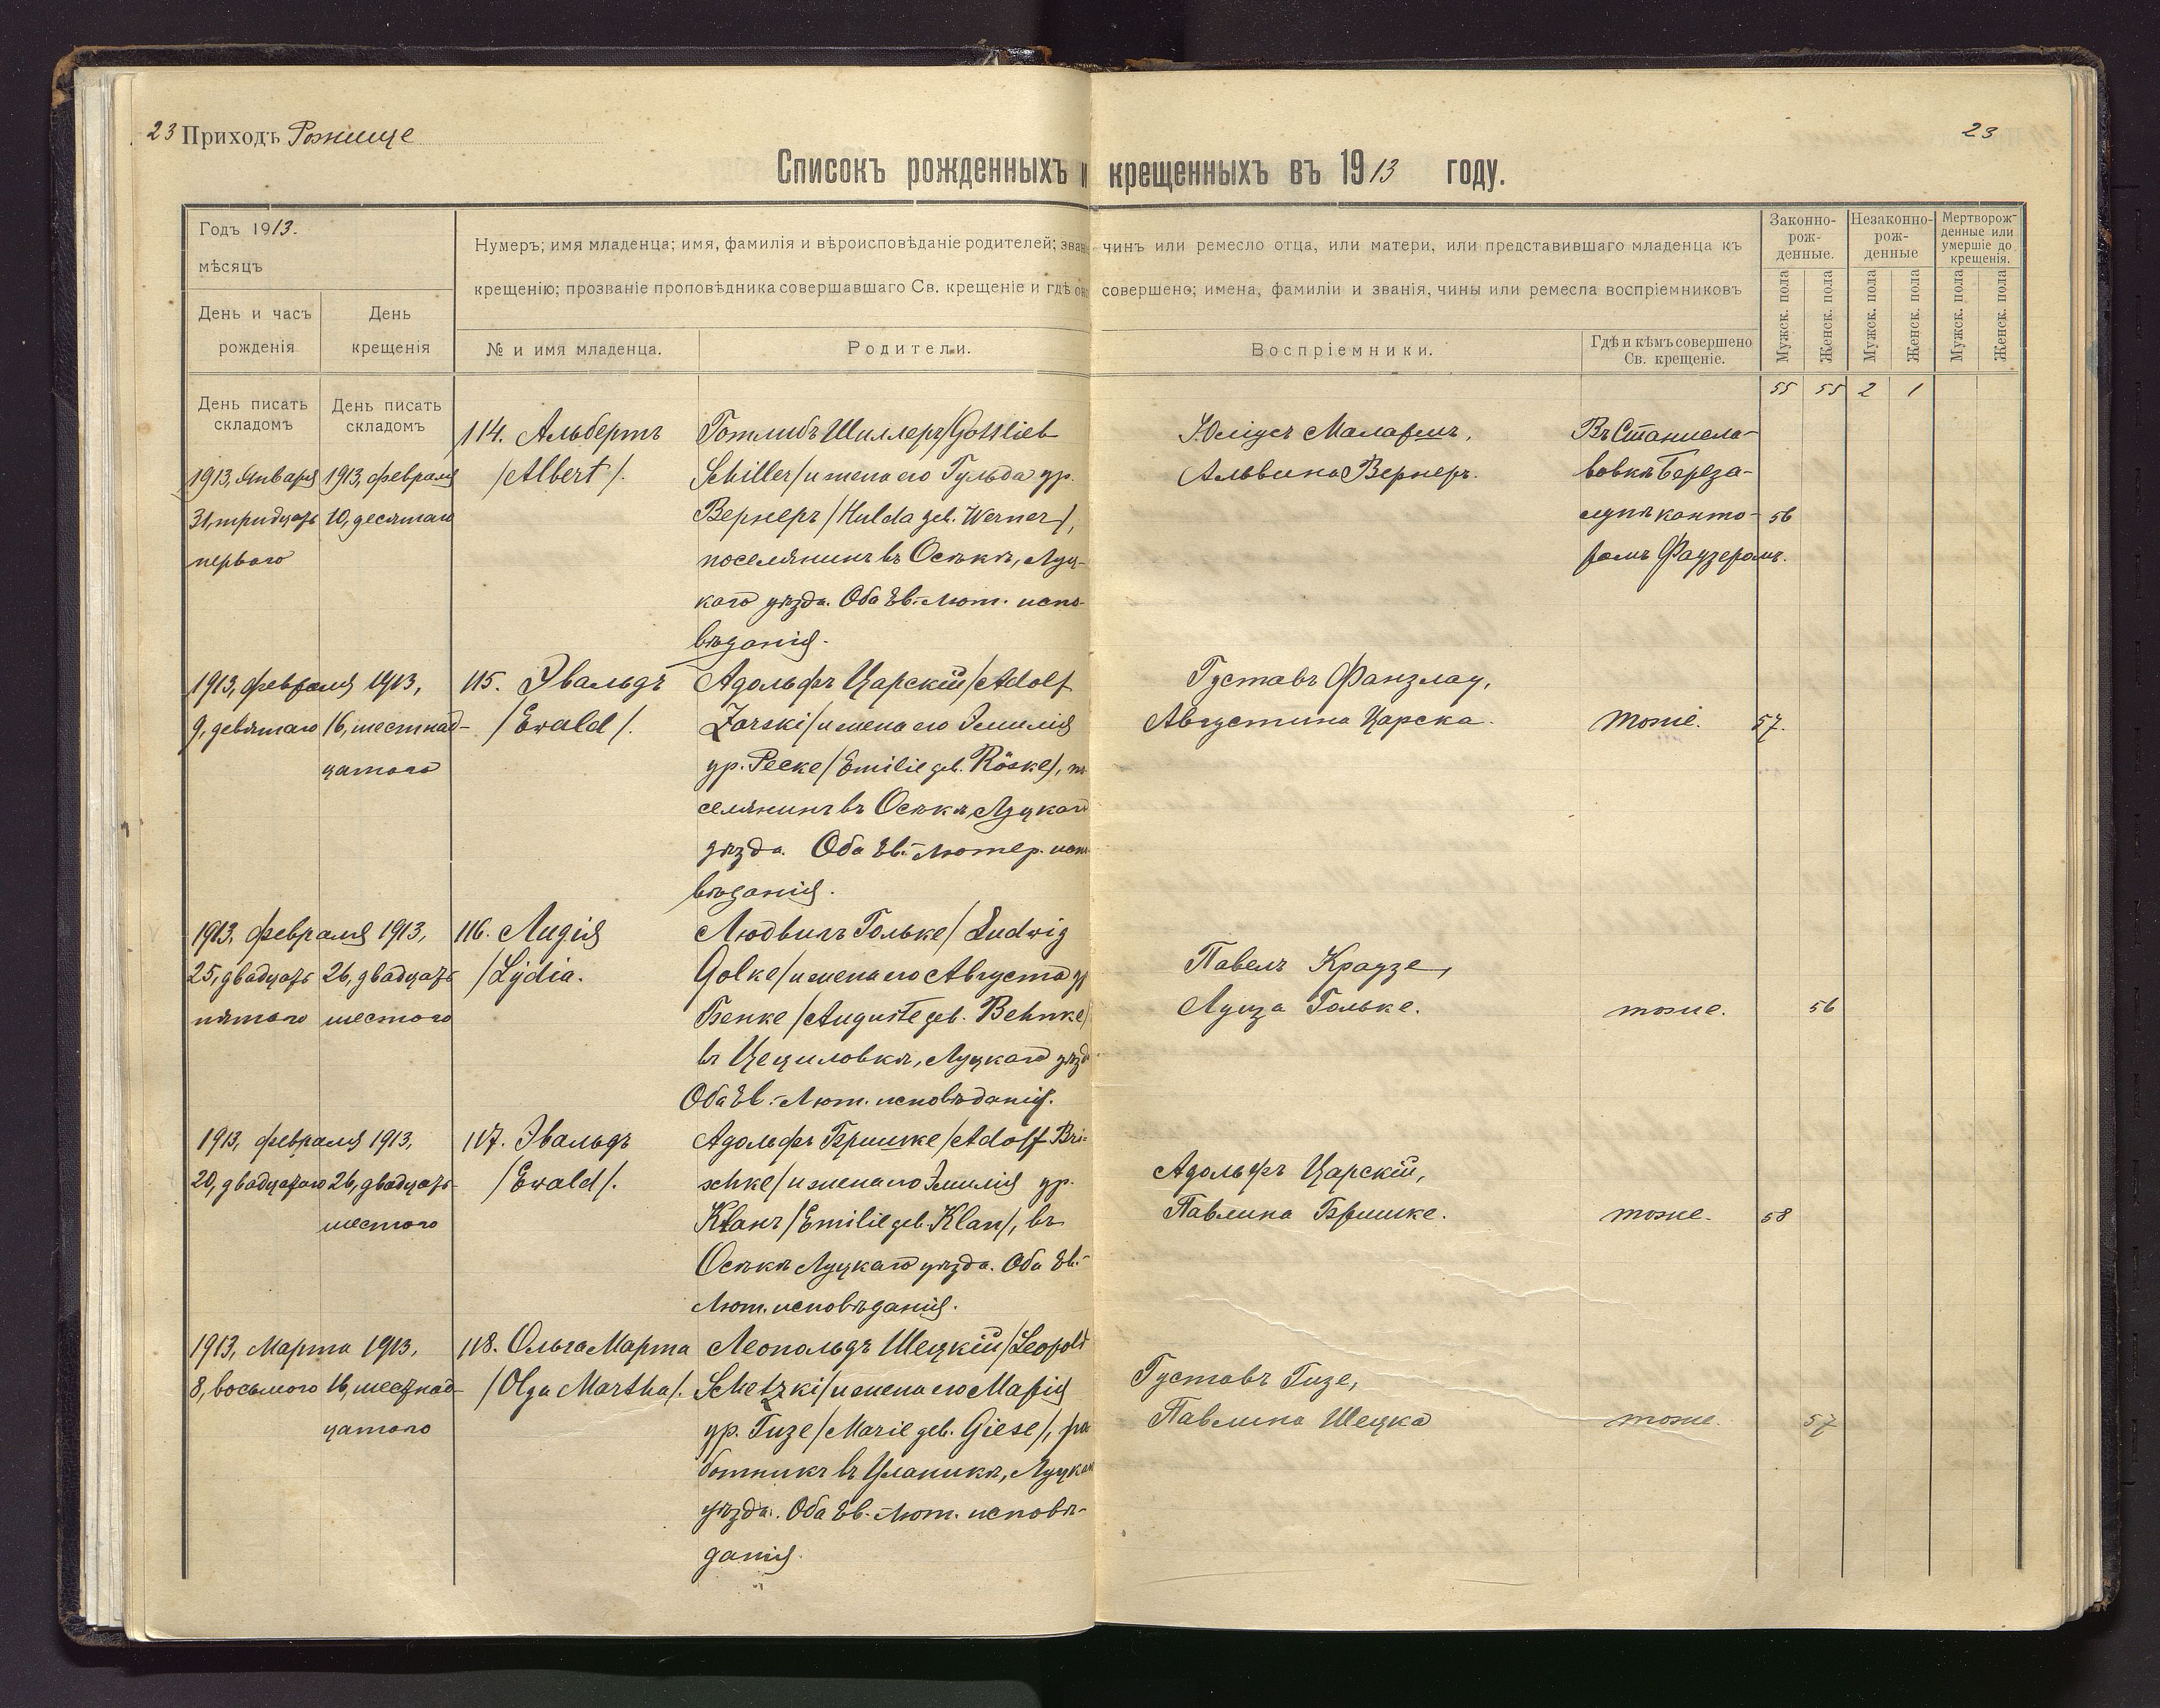 23 Приходъ Рожище
23
Списокъ рожденныхъ и крещенныхъ въ 1913 году.
Годъ 1913.
мѣсяцъ
День и часъ рожденія
День крещенія
Нумеръ; имя младенца; имя, фамилія и вѣроисповѣданіе родителей; зван чинъ или ремесло отца, или матери, или представившаго младенца къ
крещенію; прозваніе проповѣдника совершавшаго Св. крещеніе и гдѣ оно совершено; имена, фамиліи и званія, чины или ремесла воспріемниковъ
№ и имя младенца.
Родители.
Воспріемники.
Гдѣ и кѣмъ совершено
Св. крещеніе.
Законно-
рож-
денные.
Незаконно-
рож-
денные
Мертворож-
денные или
умершіе до
крещенія.
Мужск. пола
Женск. пола
Мужск. пола
Женск. пола
Мужск. пола
Женск. пола
День писать
складомъ
День писать
складомъ
55 55 2 1
1913, Января
31, тридцать
перваго
1913, февраля
10, десятаго
114. Альбертъ
/Albert/.
Готлибъ Шиллеръ/Gottlieb
Schiller/и жена его Гульда ур.
Вернеръ/Hulda geb. Werner/,
поселянинъ въ Осѣкѣ, Луц-
каго уѣзда. Оба Ев.-Лют. испо-
вѣданія.
Юліусъ
Альвина Вернеръ.
Въ Станисла-
вовкѣ Береза-
лупѣ канто-
ромъ Фаузеромъ.
56
1913, февраля 1913,
9, девятаго 16, шестнад-
цатаго
115. Эвальдъ
/Ewald/.
Адольфъ Царскій/Adolf
Zarski/и жена его Эмилія
ур. Реске/Emilie geb. Röske/, по
селянинъ въ Осѣкѣ, Луцкаго
уѣзда. Оба Ев.-Лютер. испо
вѣданія.
Густавъ Фанзлау,
Августина Царска.
тоже.
57.
1913, февраля 1913,
25, двадцать 26, двадцать
пятаго шестого
116. Лидія
/Lydia.
Людвигъ Гольке/Ludwig
Golke/и жена его Августа ур
Бенке/Auguste geb. Behnke/
въ Цециловкѣ, Луцкаго уѣзд
Оба Ев.-Лют. исповѣданія.
Павелъ Краузе,
Луиза Гольке.
тоже.
56
1913, февраля 1913,
20, двадцатаго 26, двадцать
шестого
117. Эвальдъ
/Ewald/.
Адольфъ Бришке/Adolf Bri-
schke/и жена его Эмилія ур.
Кланъ/Emilie geb. Klan/, въ
Осѣкѣ Луцкаго уѣзда. Оба Ев.-
Лют. исповѣданія.
Адольфъ Царскій,
Павлина Бришке.
тоже.
58
1913, Марта 1913,
8, восьмого 16, шестнад-
цатаго
118. Ольга Марта
/Olga Martha/.
Леопольдъ Шецкій/Leopold
Schetzki/и жена его Марія
ур. Гизе/Marie geb. Giese/, ра
ботникъ въ Уланикѣ, Луцкаго
уѣзда. Оба Ев.-Лют. исповѣ-
данія.
Густавъ Гизе,
Павлина Шецка
тоже.
57